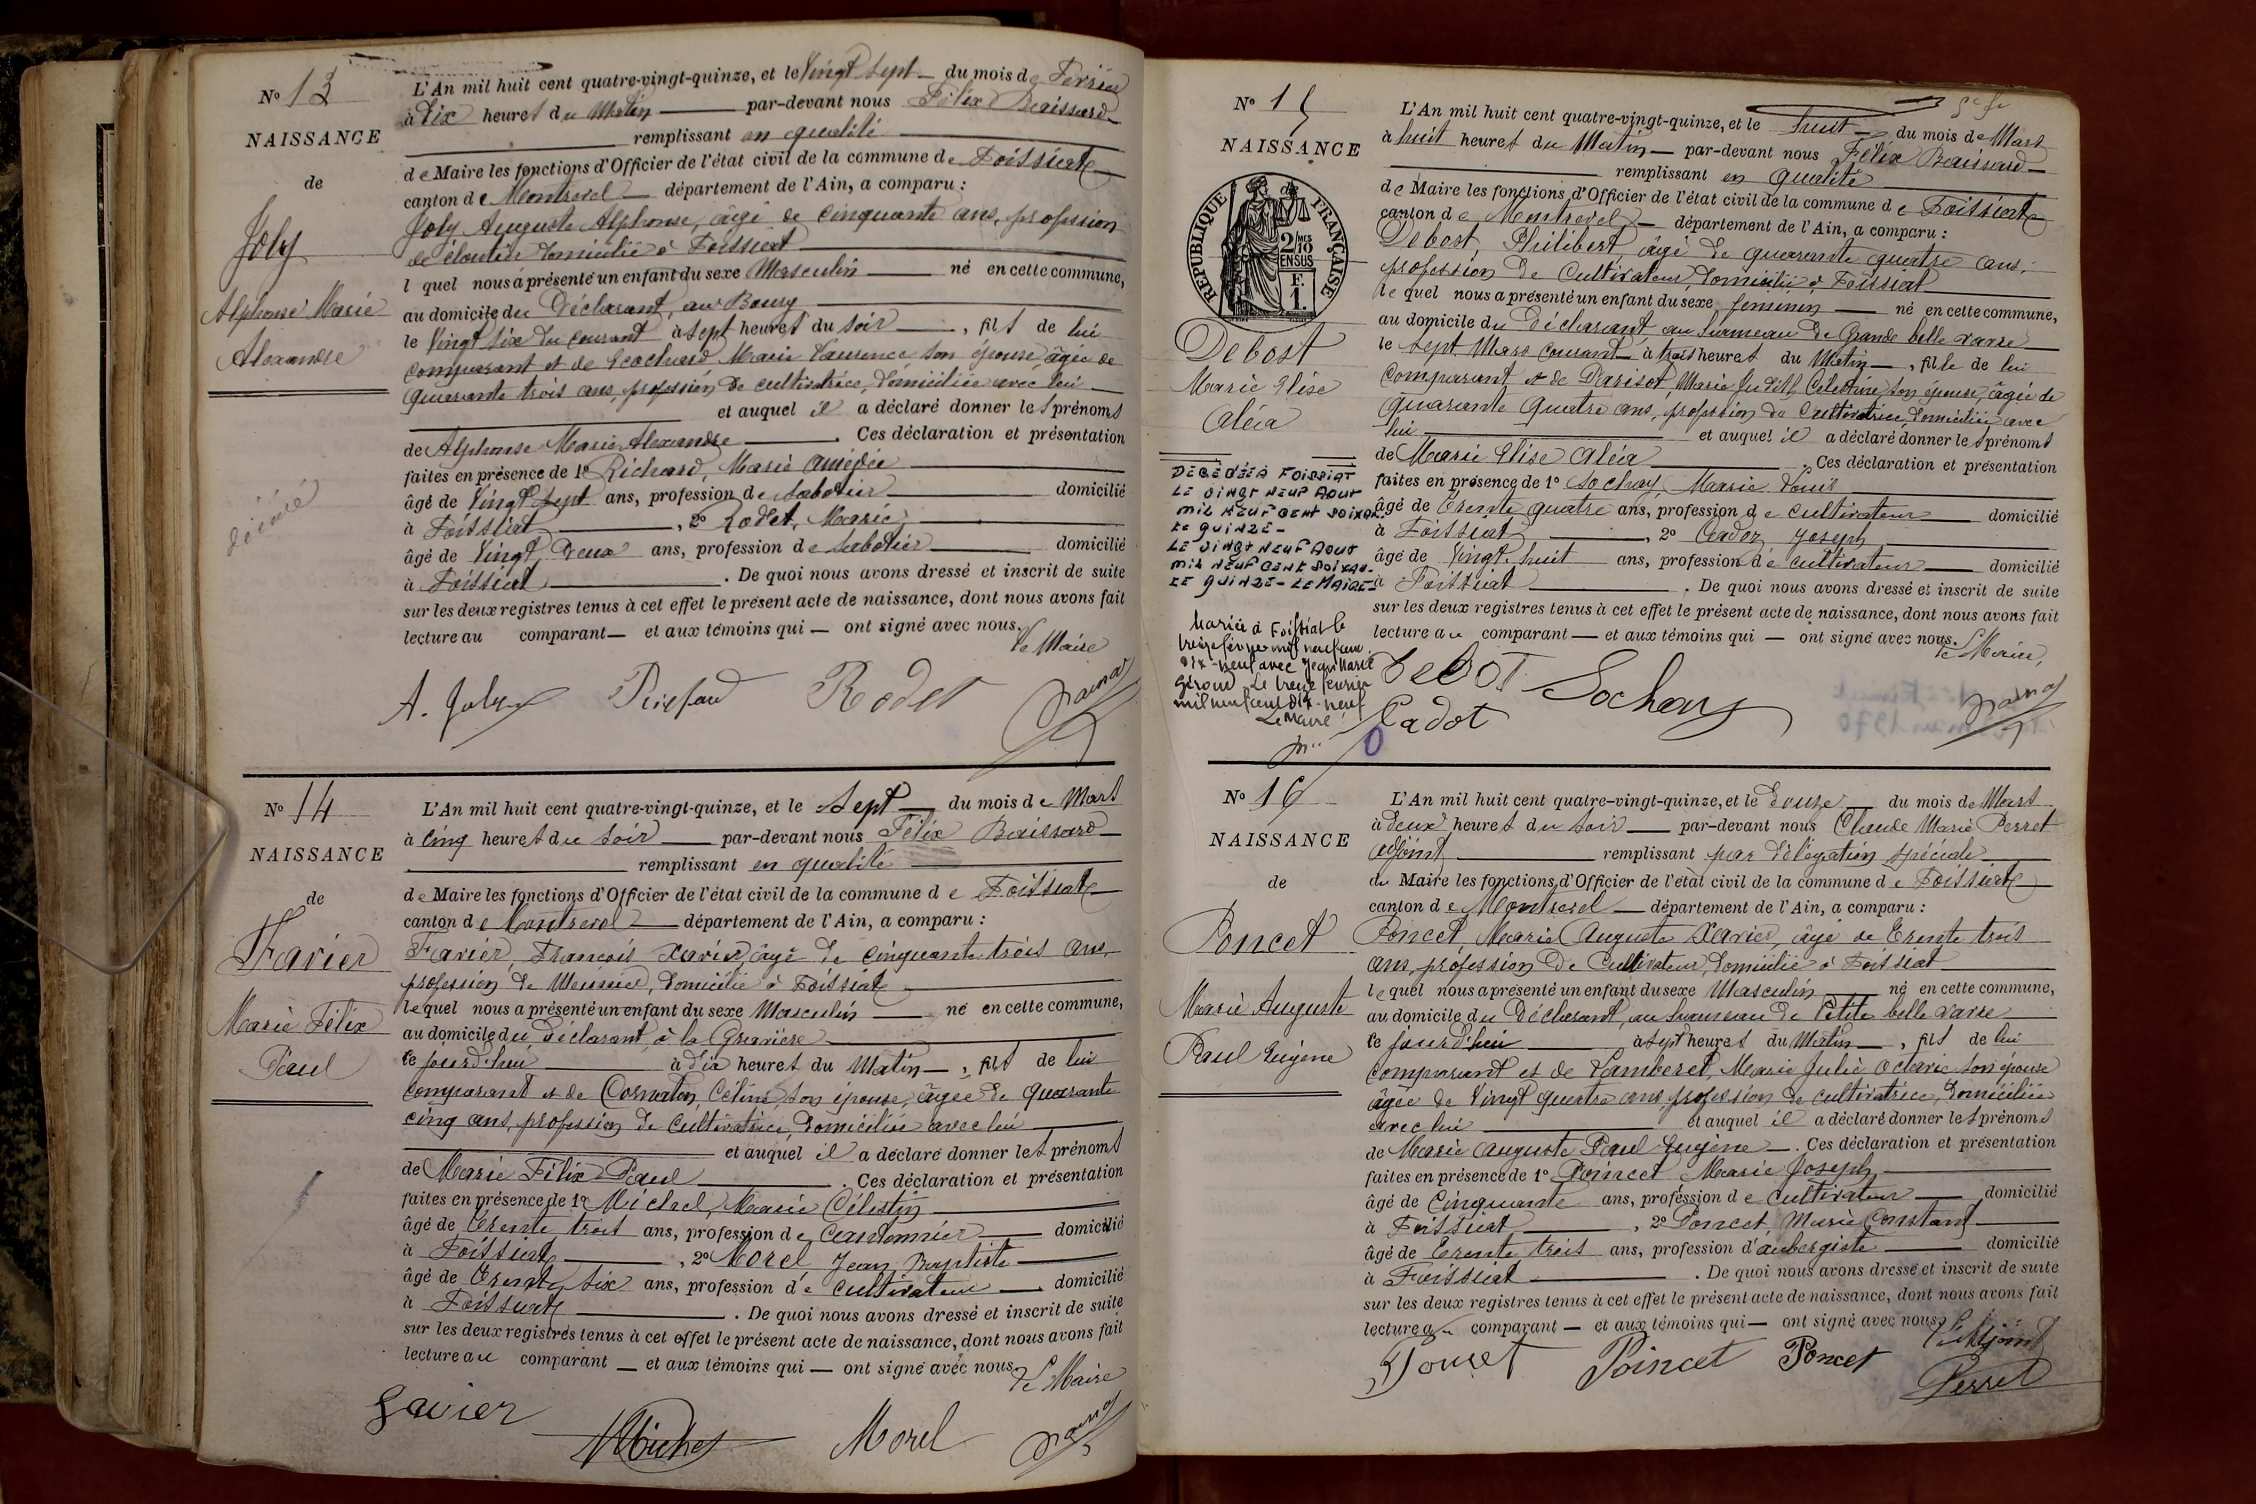 N° 13
NAISSANCE
de
Joly
Alphonse Marie
Alexandre
décédé
L'An mil huit cent quatre-vingt-quinze, et le Vingt sept du mois de Février
à dix heures du Matin par-devant nous Félix Baissard
remplissant en qualité
de Maire les fonctions d'Officier de l'état civil de la commune de Foissiat
canton de Montrevel département de l'Ain, a comparu :
Joly Auguste Alphonse, âgé de cinquante ans, profession
de cloutier domicilié à Foissiat
lquel nous a présenté un enfant du sexe Masculin né en cette commune,
au domicile du Déclarant, au Bourg
le Vingt six du courant à sept heures du soir, fils de lui
comparant et de Marie Laurence son épouse âgée de
quarante trois ans, profession de cultivatrice, domiciliée avec lui
et auquel il a déclaré donner les prénoms
de Alphonse Marie Alexandre. Ces déclaration et présentation
faites en présence de 1° Richard, Marie Amédée
âgé de Vingt sept ans, profession de sabotier domicilié
à Foissiat, 2° Rodet, Marie
âgé de Vingt Deux ans, profession de sabotier domicilié
à Foissiat. De quoi nous avons dressé et inscrit de suite
sur les deux registres tenus à cet effet le présent acte de naissance, dont nous avons fait
lecture au comparant et aux témoins qui ont signé avec nous.
Le Maire
A. Joly Richard Rodet
N° 14
NAISSANCE
de
Favier
Marie Félix
Paul
L'An mil huit cent quatre-vingt-quinze, et le sept du mois de Mars
à cinq heures du soir par-devant nous Félix Baissard
remplissant en qualité
de Maire les fonctions d'Officier de l'état civil de la commune de Foissiat
canton de Montrevel département de l'Ain, a comparu :
Favier, François Xavier, âgé de cinquante trois ans,
profession de Menuisier, domicilié à Foissiat
lequel nous a présenté un enfant du sexe Masculin né en cette commune,
au domicile du Déclarant, à la Gravière
ce jourd'hui à dix heures du Matin, fils de lui
comparant et de Cormaton, Céline, son épouse, âgée de quarante
cinq ans, profession de cultivatrice, domiciliée avec lui
et auquel il a déclaré donner les prénoms
de Marie Félix Paul. Ces déclaration et présentation
faites en présence de 1° Michel, Marie Célestin
âgé de trente trois ans, profession de cantonnier domicilié
à Foissiat, 2° Morel Jean Baptiste
âgé de trente six ans, profession de cultivateur domicilié
à Foissiat. De quoi nous avons dressé et inscrit de suite
sur les deux registres tenus à cet effet le présent acte de naissance, dont nous avons fait
lecture au comparant et aux témoins qui ont signé avec nous.
Le Maire
Favier Michel Morel
N° 15
NAISSANCE
RÉPUBLIQUE FRANÇAISE
2/10 MES
EN SUS
F.
1.
Debost
Marie Elise
Aléa
DÉCÉDÉE À FOISSIAT
LE VINGT NEUF AOUT
MIL NEUF CENT SOIXAN-
TE QUINZE -
LE VINGT NEUF AOUT
MIL NEUF CENT SOIXAN-
TE QUINZE - LE MAIRE -
Mariée à Foissiat le
treize février mil neuf cent
dix-neuf avec Jean Marie
Giroud. Le treize février
mil neuf cent dix-neuf
Le Maire
L'An mil huit cent quatre-vingt-quinze, et le huit du mois de Mars
à huit heures du Matin par-devant nous Félix Baissard
remplissant en qualité
de Maire les fonctions d'Officier de l'état civil de la commune de Foissiat
canton de Montrevel département de l'Ain, a comparu :
Debost, Philibert, âgé de quarante quatre ans,
profession de Cultivateur, domicilié à Foissiat
lequel nous a présenté un enfant du sexe féminin né en cette commune,
au domicile du Déclarant, au hameau de Grande belle varre
le sept Mars courant à trois heures du Matin, fille de lui
comparant et de Parisot, Marie Judith Célestine, son épouse, âgée de
quarante quatre ans, profession de cultivatrice, domiciliée avec
lui et auquel il a déclaré donner les prénoms
de Marie Elise Aléa. Ces déclaration et présentation
faites en présence de 1° Sochay, Marie Louis
âgé de trente quatre ans, profession de cultivateur domicilié
à Foissiat, 2° Cadoz Joseph
âgé de Vingt huit ans, profession de cultivateur domicilié
à Foissiat. De quoi nous avons dressé et inscrit de suite
sur les deux registres tenus à cet effet le présent acte de naissance, dont nous avons fait
lecture au comparant et aux témoins qui ont signé avec nous.
Le Maire,
Debot Sochay
Cadot
N° 16
NAISSANCE
de
Poncet
Marie Auguste
Paul Eugène
L'An mil huit cent quatre-vingt-quinze, et le douze du mois de Mars
à deux heures du soir par-devant nous Claude Marie Perret
adjoint remplissant par délégation spéciale
du Maire les fonctions d'Officier de l'état civil de la commune de Foissiat
canton de Montrevel département de l'Ain, a comparu :
Poncet, Marie Auguste Xavier, âgé de trente trois
ans, profession de Cultivateur, domicilié à Foissiat
lequel nous a présenté un enfant du sexe Masculin né en cette commune,
au domicile du Déclarant, au hameau de Petite belle varre
ce jourd'hui à sept heures du Matin, fils de lui
comparant et de Lamberet, Marie Julie Octavie son épouse
âgée de Vingt quatre ans, profession de cultivatrice, domiciliée
avec lui et auquel il a déclaré donner les prénoms
de Marie Auguste Paul Eugène. Ces déclaration et présentation
faites en présence de 1° Poincet Marie Joseph
âgé de cinquante ans, profession de cultivateur domicilié
à Foissiat, 2° Poncet Marie Constant
âgé de trente trois ans, profession d'aubergiste domicilié
à Foissiat. De quoi nous avons dressé et inscrit de suite
sur les deux registres tenus à cet effet le présent acte de naissance, dont nous avons fait
lecture au comparant et aux témoins qui ont signé avec nous.
L'Adjoint
Poncet Poincet Poncet Perret